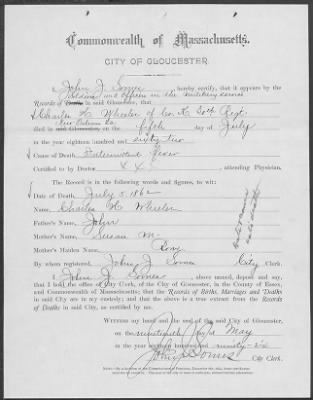 Commonwealth of Massachusetts.
CITY OF GLOUCESTER.
I, John J. Somes hereby certify, that it appears by the
Soldiers and officers in the military service
Records of Deaths in said Gloucester, that
Charles H. Wheeler of Co. K 30th Regt.
New Orleans La.
died in said Gloucester, on the fifth day of July
in the year eighteen hundred and sixty two
Cause of Death, Intermittent Fever
Certified to by Doctor X X attending Physician.
The Record is in the following words and figures, to wit:
Date of Death, July 5. 1862
Name, Charles H Wheeler
Father's Name, John
Mother's Name, Susan M.
Mother's Maiden Name,
By whom registered, John J. Somes City Clerk.
I, John J Somes above named, depose and say,
that I hold the office of City Clerk, of the City of Gloucester, in the County of Essex,
and Commonwealth of Massachusetts; that the Records of Births, Marriages and Deaths
in said City are in my custody; and that the above is a true extract from the Records
of Deaths in said City, as certified by me.
WITNESS my hand and the seal of the said City of Gloucester,
on the nineteenth day of May
in the year eighteen hundred and ninety-six
John J Somes
City Clerk.